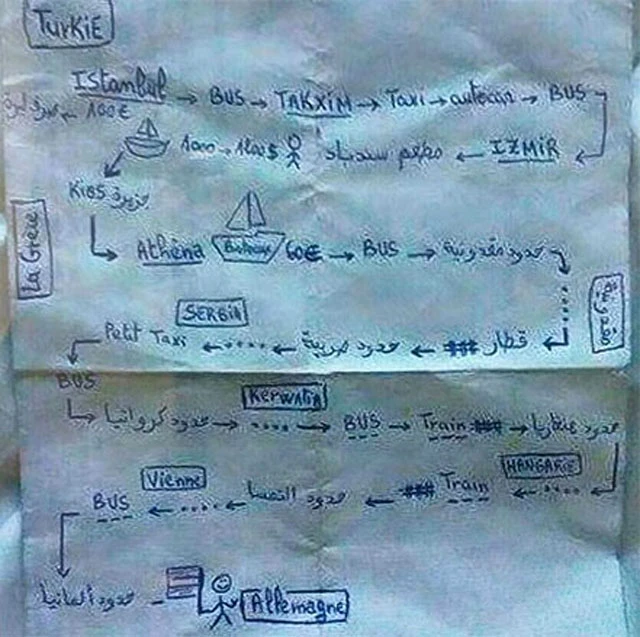 TurKiE
IStanbul → BUS → TAKXIM → Taxi → autocar → BUS
100€
IZMIR ← مطعم سندباد 1000 → 1200$
KiOS جزيرة
La Grèce
Athèna Bateau 60€ → BUS → حدود مقدونية
مقدونية
SERBIA
قطار ← حدود صربية ← .... ← Petit Taxi
BUS
Kerwatia
حدود كرواتيا → .... → BUS → Train → حدود هنغاريا
HANGARiE
.... ← Train ← حدود النمسا ← .... ← BUS
Vienne
حدود ألمانيا
Allemagne